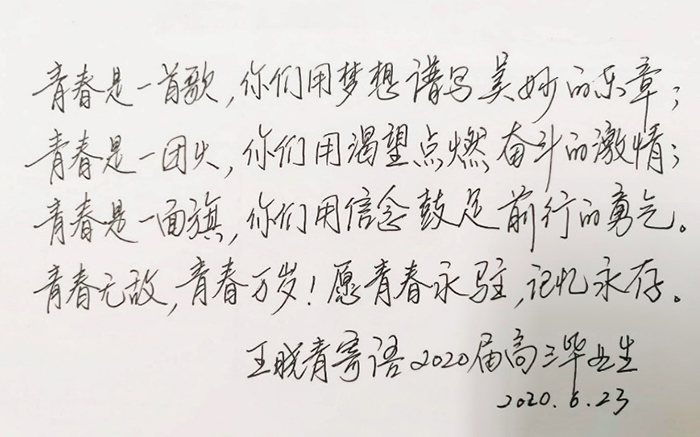 青春是一首歌，你们用梦想谱写美妙的乐章；
青春是一团火，你们用渴望点燃奋斗的激情；
青春是一面旗，你们用信念鼓足前行的勇气。
青春无敌，青春万岁！愿青春永驻，记忆永存。
王晓青寄语2020届高三毕业生
2020.6.23